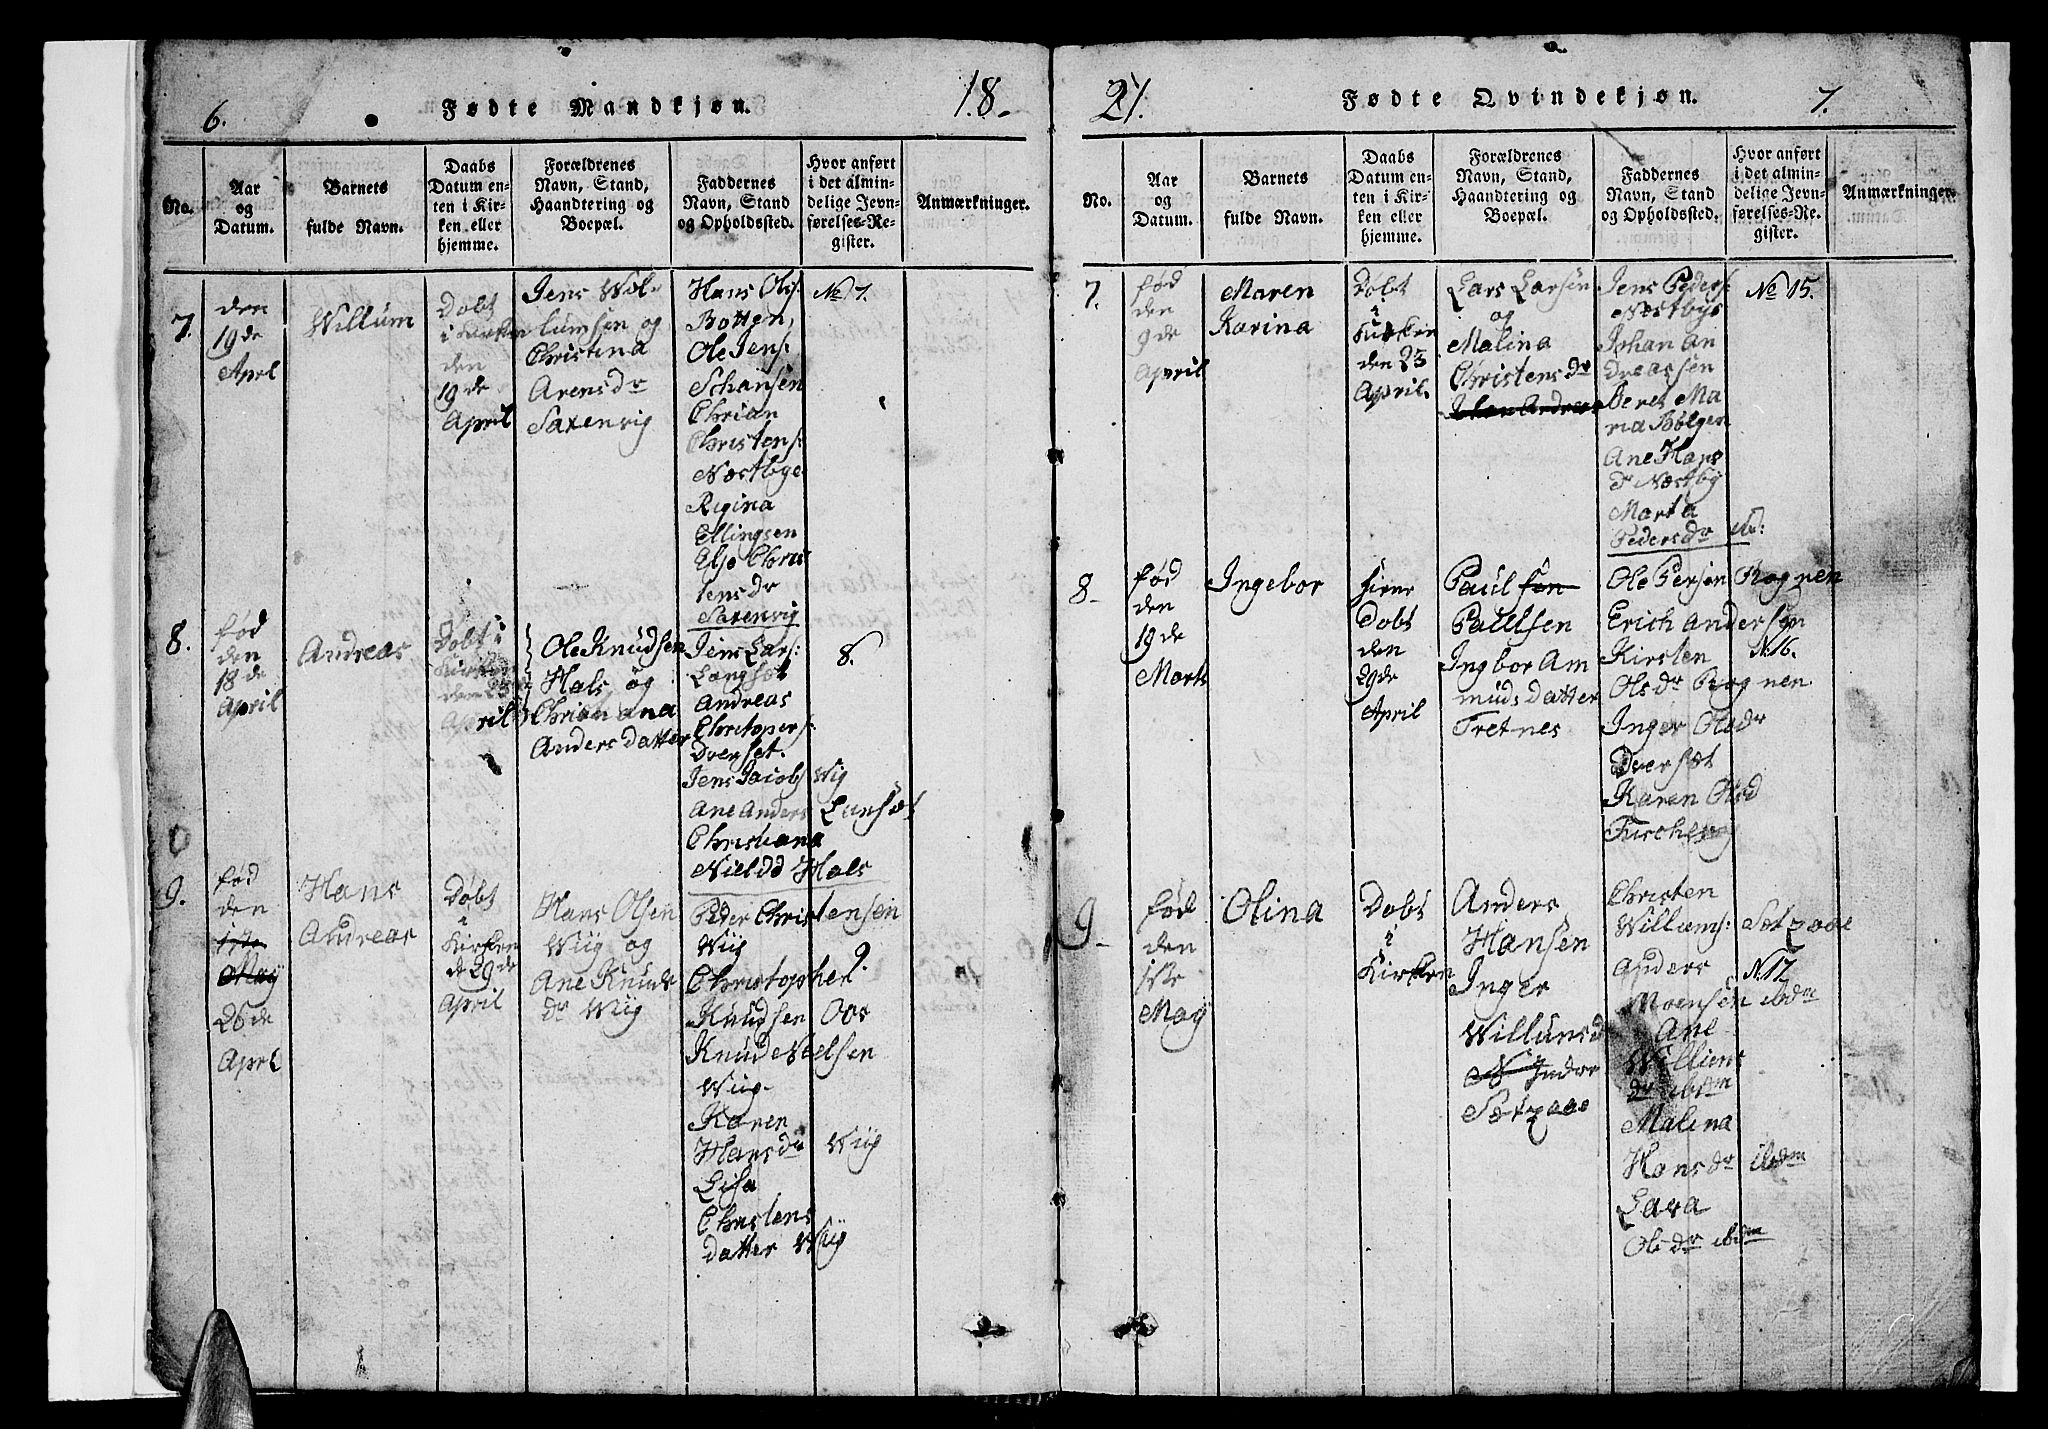 6.
Fødte Mandkjøn.
18.
No.
Aar
og
Datum.
Barnets
fulde Navn.
Daabs
Datum en-
ten i Kir-
ken eller
hjemme.
Forældrenes
Navn, Stand,
Haandtering og
Boepæl.
Faddernes
Navn, Stand
og Opholdssted.
Hvor anført
i det almin-
delige Jevn-
førelses-Re-
gister.
Anmærkninger.
7.
den
19de
Apr
Willum
Døbt
i Kirken
den
19de
April
Jens Wol-
lumsen og
Christina
Arensdr
Saxenvig
Hans Ols:
Botten,
Ole Jens:
Schansen
Chrian
Christens:
Næstbye
Regina
Ellingsen
Else Chris
tensdr
Saxenvig
No 7.
8.
fød
den
18de
April
Andreas
Døbt i
Kirken
den 23
April
Ole Knudsen
Hals og
Andersdatter
Jens Lars:
Langset
Andreas
Christopers:
Dverset.
Jens Jacobs Wig
Ane Anders
Christiana
Hals
8.
9.
fød
den
1ste
May
26de
April
Hans
Andreas
Døbt
i
Kirken
d 29de
April
Hans Olsen
Wiig og
Ane Knuds
dr Wiig
Peder Christensen
Wiig
Christopher
Knudsen Oos
Knud Nielsen
Wiig
Karen
Hansdr Wiig
Lisa
Christens
datter Wiig
9.
21.
Fødte Qvindekjøn.
7.
No.
Aar
og
Datum.
Barnets
fulde Navn.
Daabs
Datum en-
ten i Kir-
ken eller
hjemme.
Forældrenes
Navn, Stand,
Haandtering og
Boepæl.
Faddernes
Navn, Stand
og Opholdssted.
Hvor anført
i det almin-
delige Jevn-
førelses-Re-
gister.
Anmærkninger.
7.
fød
den
9de
April
Maren
Karina
Døbt
i
Kirken
den 23
April.
Lars Larsen
og
Malina
Christensdr
Johan Andreas
Jens Peders:
Næstbys
Johan An
dreassen
Beret Ma
ria Bølgen
Ane Hans
dr Næstby
Marta
Pedersdr
No 15.
8
fød
den
19de
Marts
Ingebor
Døbt
den
29de
April
Paul sen
Paulsen
Ingbor Am
mudsdatter
Tretnes
Ole Persen Rognen
Erich Andersen
Kirsten
Olsdr Rognen
Inger Olsdr
Dversæt
Karen Olsd
N.16.
9
fød
den
1ste
May
Olina
Døbt
i
Kirken
Anders
Hansen
Inger
Willumsd
Christen
Willums:
Anders
Moensen ibdm
Ane
Willums
dr ibdm
Malina
Hansdr ibdm
Lava
Olsdr ibdm
N.17.